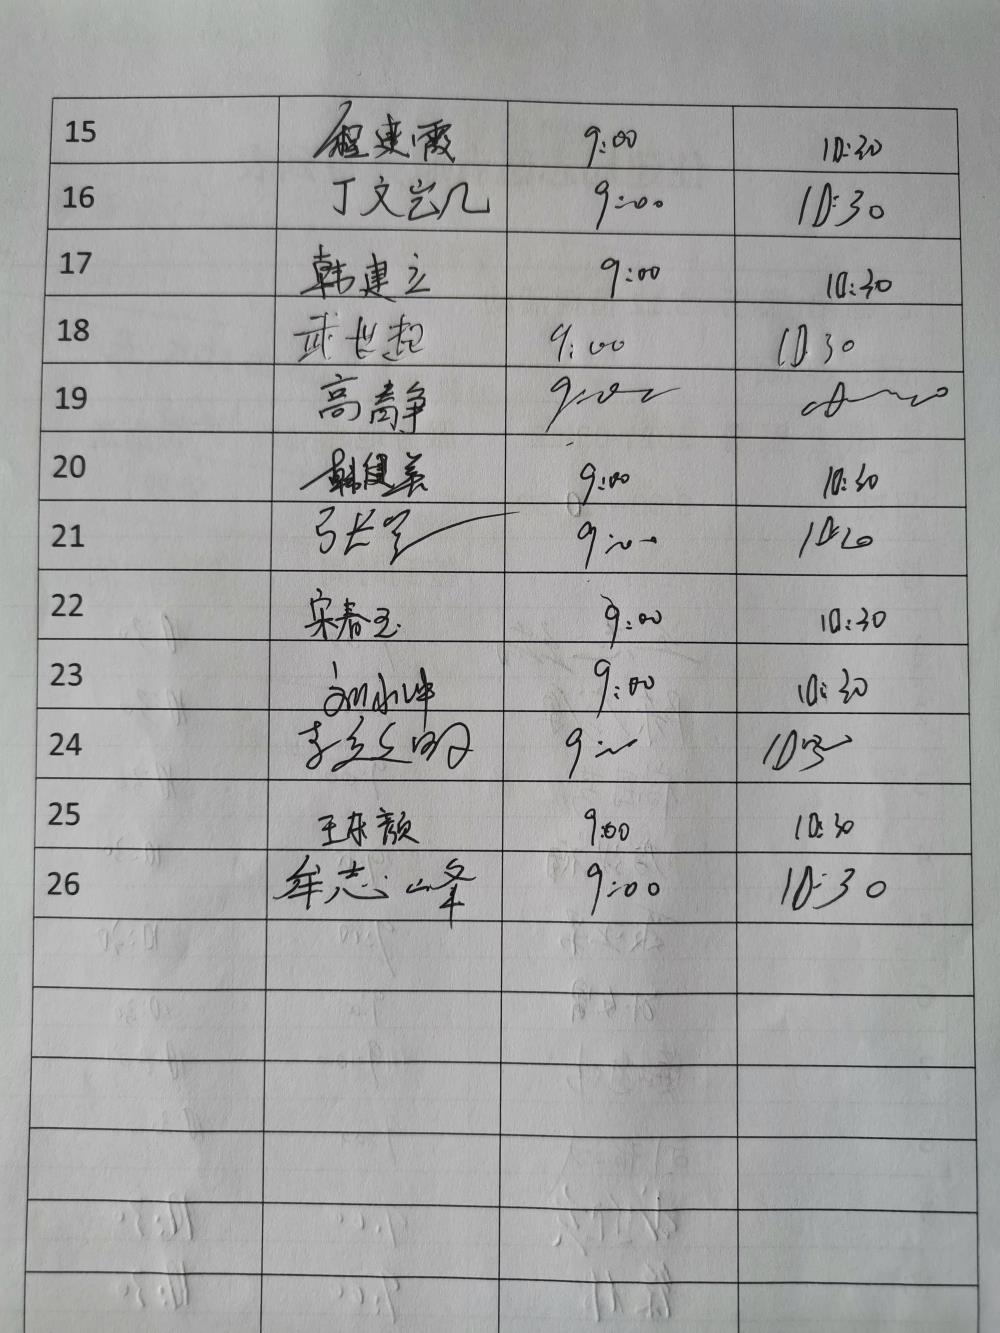 15 程建霞 9:00 10:30
16 丁文 9:00 10:30
17 韩建立 9:00 10:30
18 武世起 9:00 10:30
19 高静 9:00
20 韩健美 9:00 10:30
21 张 9:00 10:30
22 宋春玉 9:00 10:30
23 刘小坤 9:00 10:30
24 李 明 9:00 10:30
25 王东颜 9:00 10:30
26 牟志峰 9:00 10:30